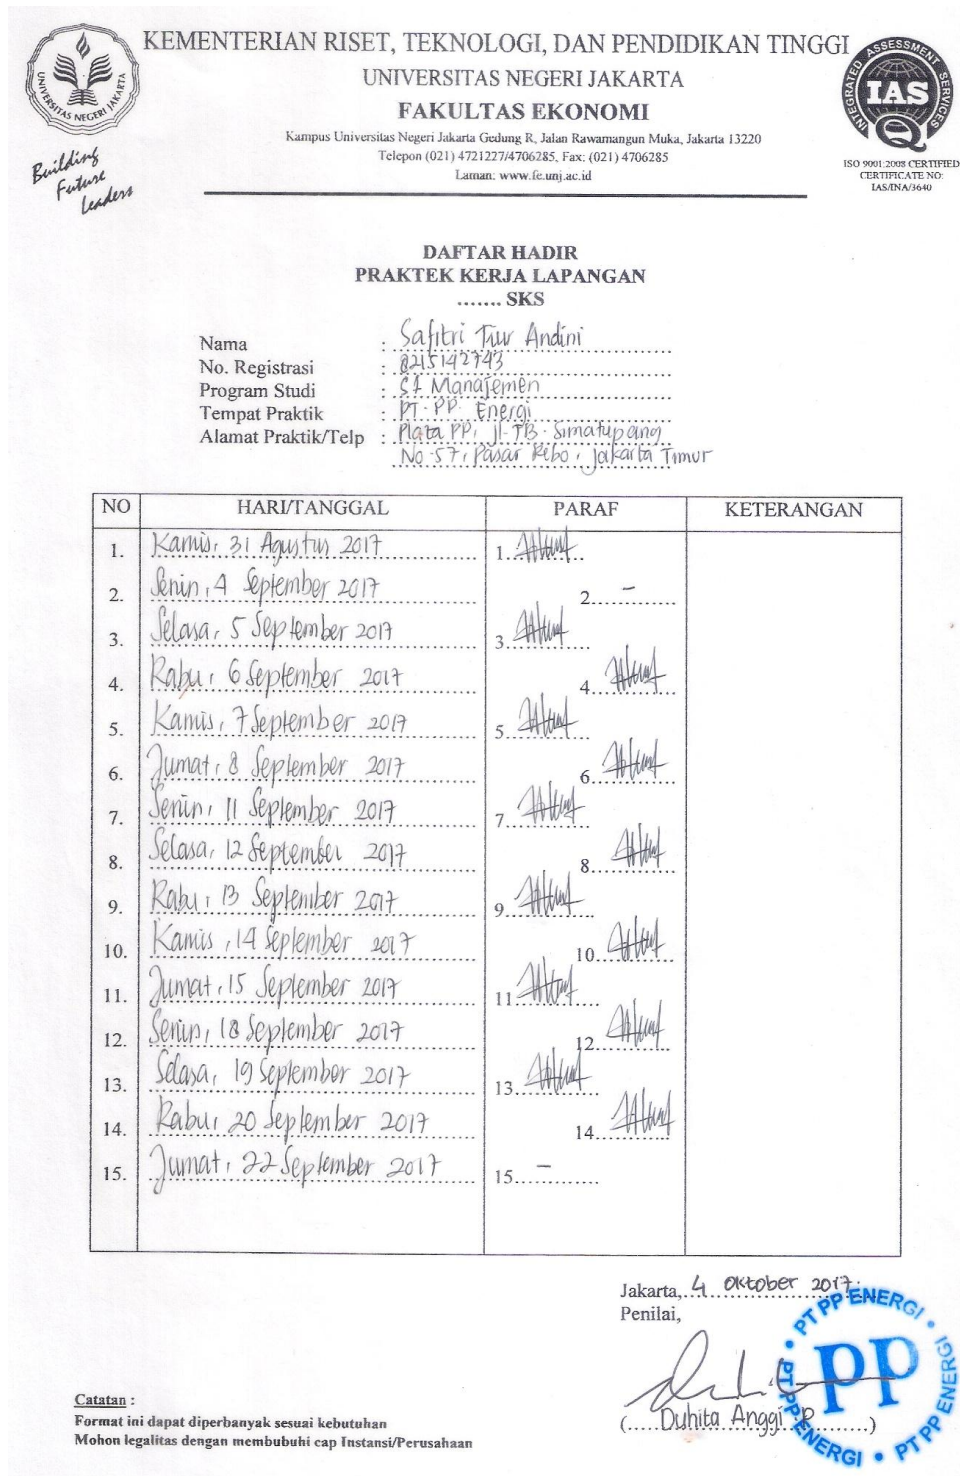 KEMENTERIAN RISET, TEKNOLOGI, DAN PENDIDIKAN TINGGI
UNIVERSITAS NEGERI JAKARTA
FAKULTAS EKONOMI
Kampus Universitas Negeri Jakarta Gedung R, Jalan Rawamangun Muka, Jakarta 13220
Telepon (021) 4721227/4706285, Fax: (021) 4706285
Laman: www.fe.unj.ac.id
UNIVERSITAS NEGERI JAKARTA
Building
Future
Leaders
INTEGRATED ASSESSMENT SERVICES
IAS
ISO 9001:2008 CERTIFIED
CERTIFICATE NO:
IAS/INA/3640
DAFTAR HADIR
PRAKTEK KERJA LAPANGAN
....... SKS
Nama : Safitri Tiur Andini
No. Registrasi : 8215142743
Program Studi : S1 Manajemen
Tempat Praktik : PT. PP. Energi
Alamat Praktik/Telp : Plaza PP, jl. TB. Simatupang
No. 57, Pasar Rebo, Jakarta Timur
NO HARI/TANGGAL PARAF KETERANGAN
1. Kamis, 31 Agustus 2017 1.
2. Senin, 4 September 2017 2. -
3. Selasa, 5 September 2017 3.
4. Rabu, 6 September 2017 4.
5. Kamis, 7 September 2017 5.
6. Jumat, 8 September 2017 6.
7. Senin, 11 September 2017 7.
8. Selasa, 12 September 2017 8.
9. Rabu, 13 September 2017 9.
10. Kamis, 14 September 2017 10.
11. Jumat, 15 September 2017 11.
12. Senin, 18 September 2017 12.
13. Selasa, 19 September 2017 13.
14. Rabu, 20 September 2017 14.
15. Jumat, 22 September 2017 15. -
Jakarta, 4 Oktober 2017
Penilai,
(Duhita Anggi .R)
PT PP ENERGI • PT PP ENERGI • PT PP ENERGI
pp
Catatan :
Format ini dapat diperbanyak sesuai kebutuhan
Mohon legalitas dengan membubuhi cap Instansi/Perusahaan